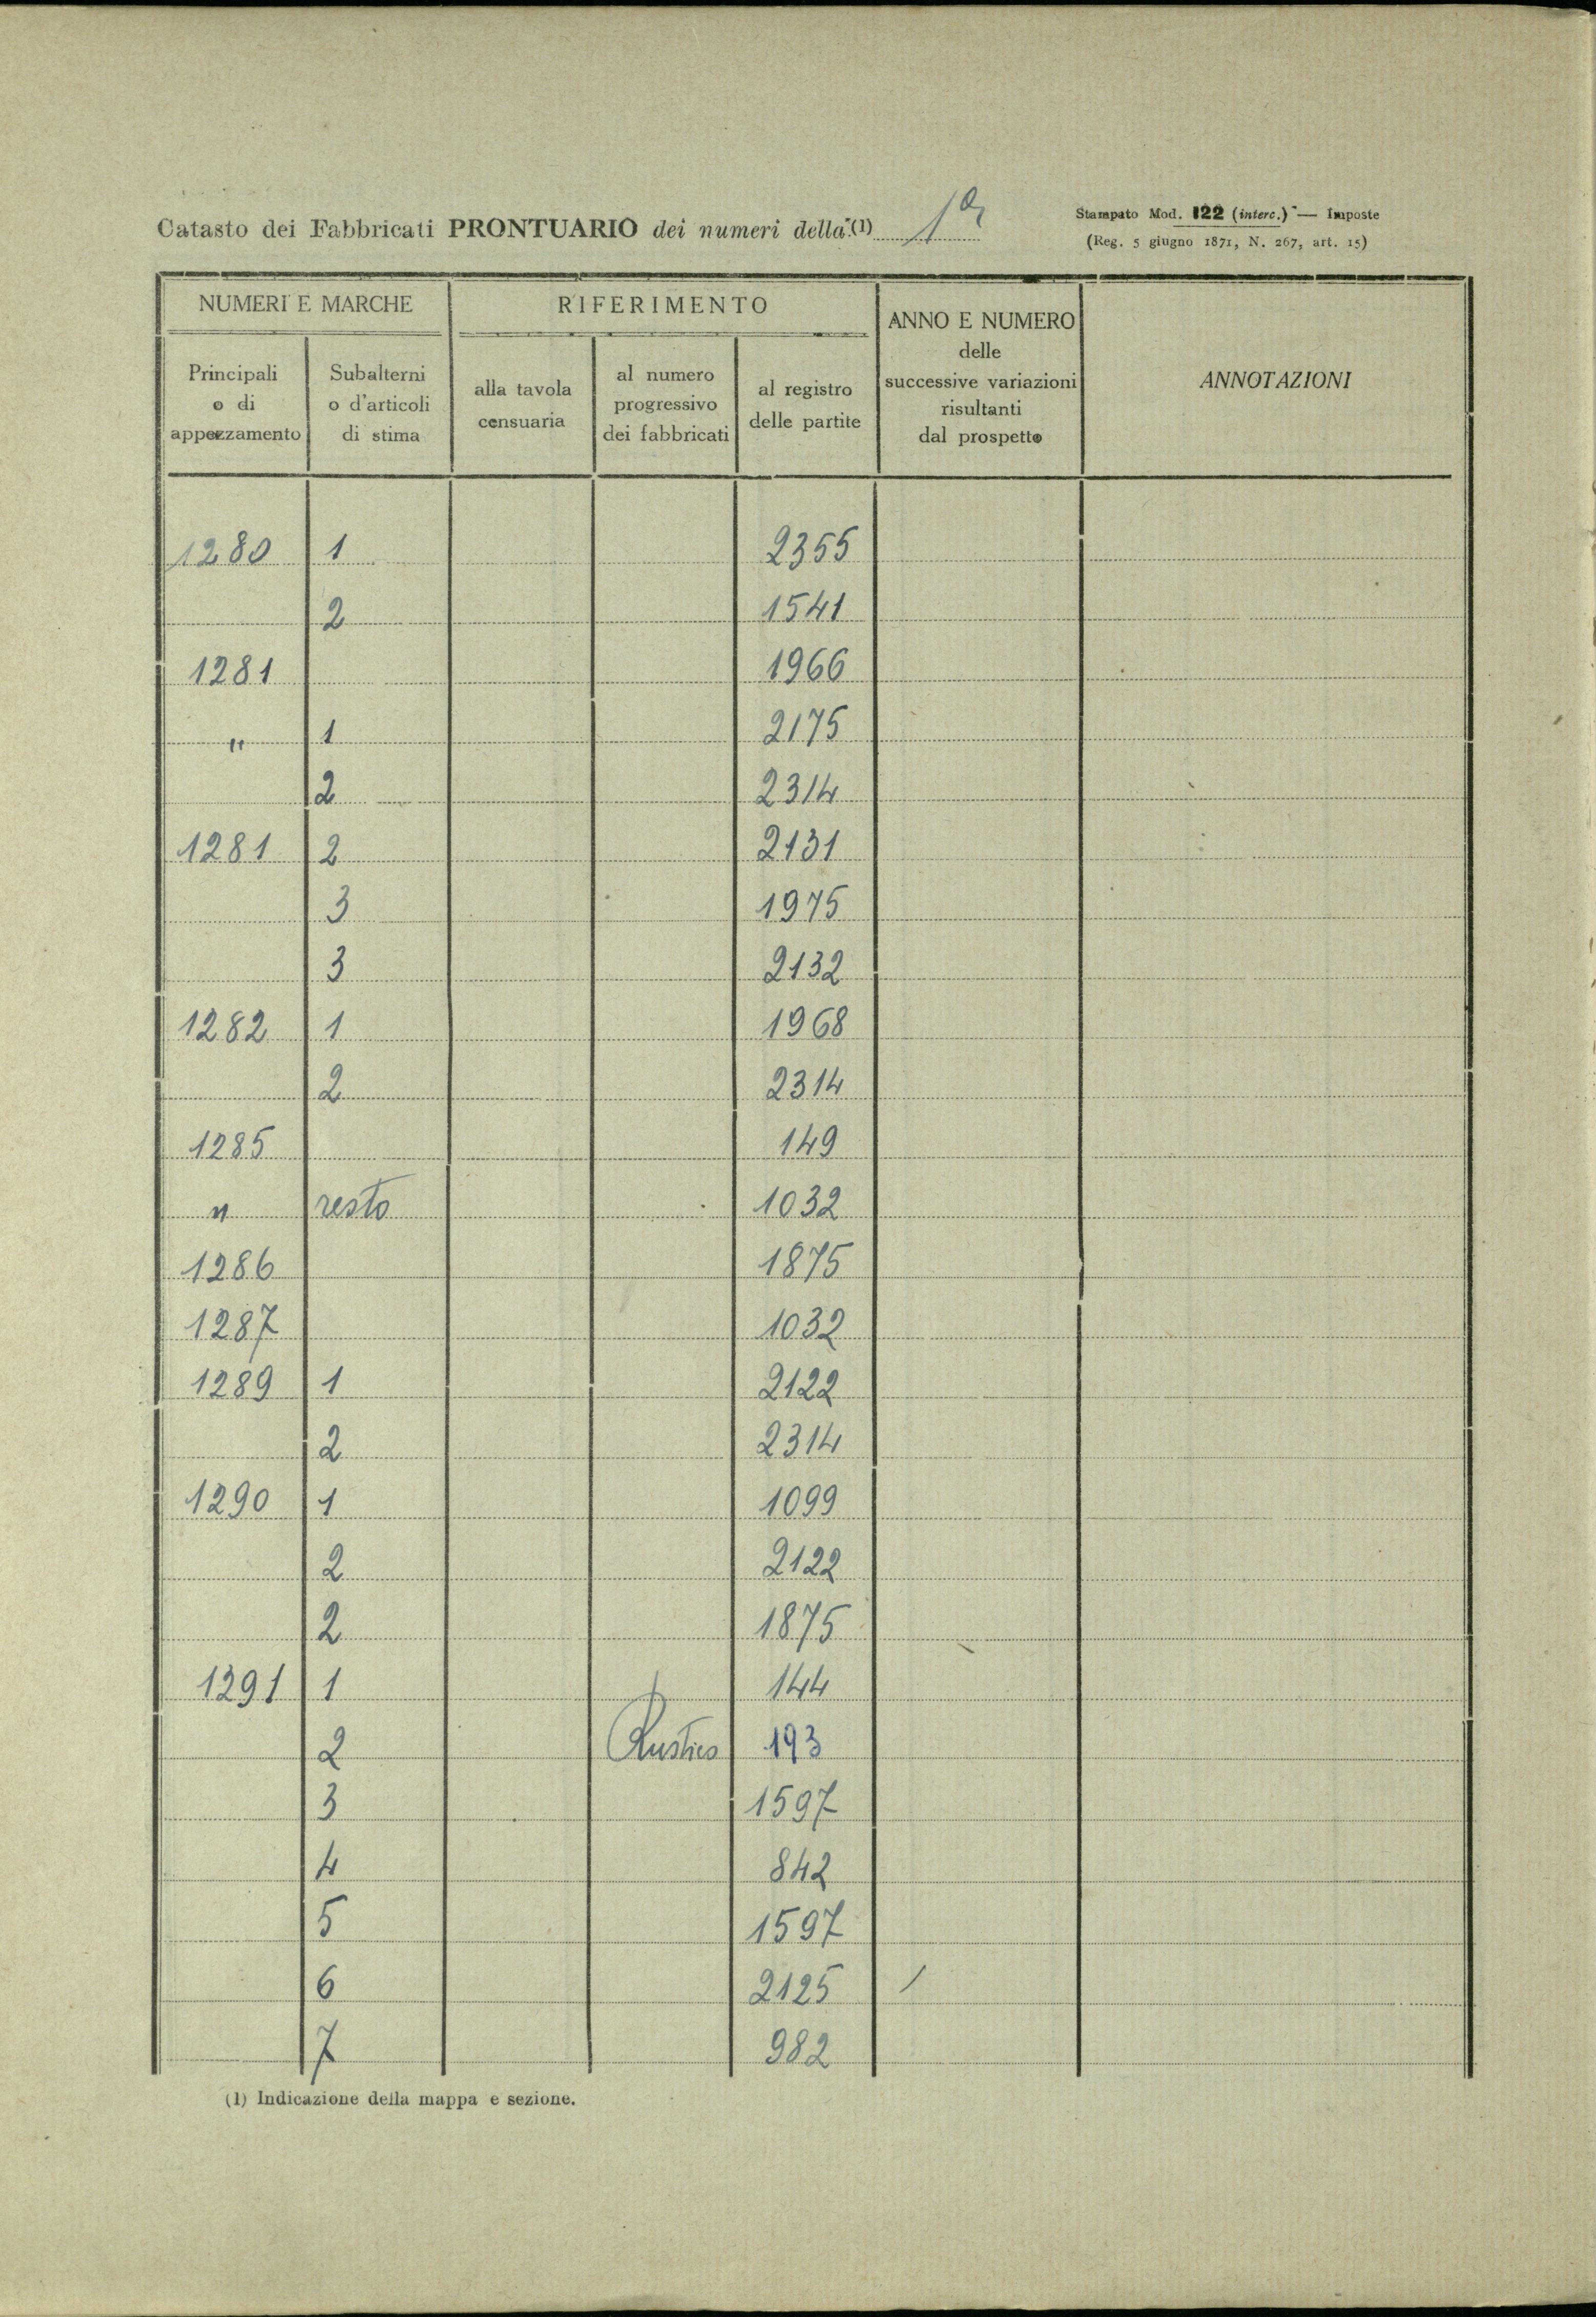 Catasto dei Fabbricati PRONTUARIO dei numeri della (1) 1a
Stampato Mod. 122 (interc.) — Imposte
(Reg. 5 giugno 1871, N. 267, art. 15)
NUMERI E MARCHE
RIFERIMENTO
ANNO E NUMERO
delle
successive variazioni
risultanti
dal prospetto
ANNOTAZIONI
Principali
o di
appezzamento
Subalterni
o d'articoli
di stima
alla tavola
censuaria
al numero
progressivo
dei fabbricati
al registro
delle partite
1280 1 2355
2 1541
1281 1966
" 1 2175
2 2314
1281 2 2131
3 1975
3 2132
1282 1 1968
2 2314
1285 149
" resto 1032
1286 1875
1287 1032
1289 1 2122
2 2314
1290 1 1099
2 2122
2 1875
1291 1 144
2 Rustico 193
3 1597
4 842
5 1597
6 2125 /
7 982
(1) Indicazione della mappa e sezione.